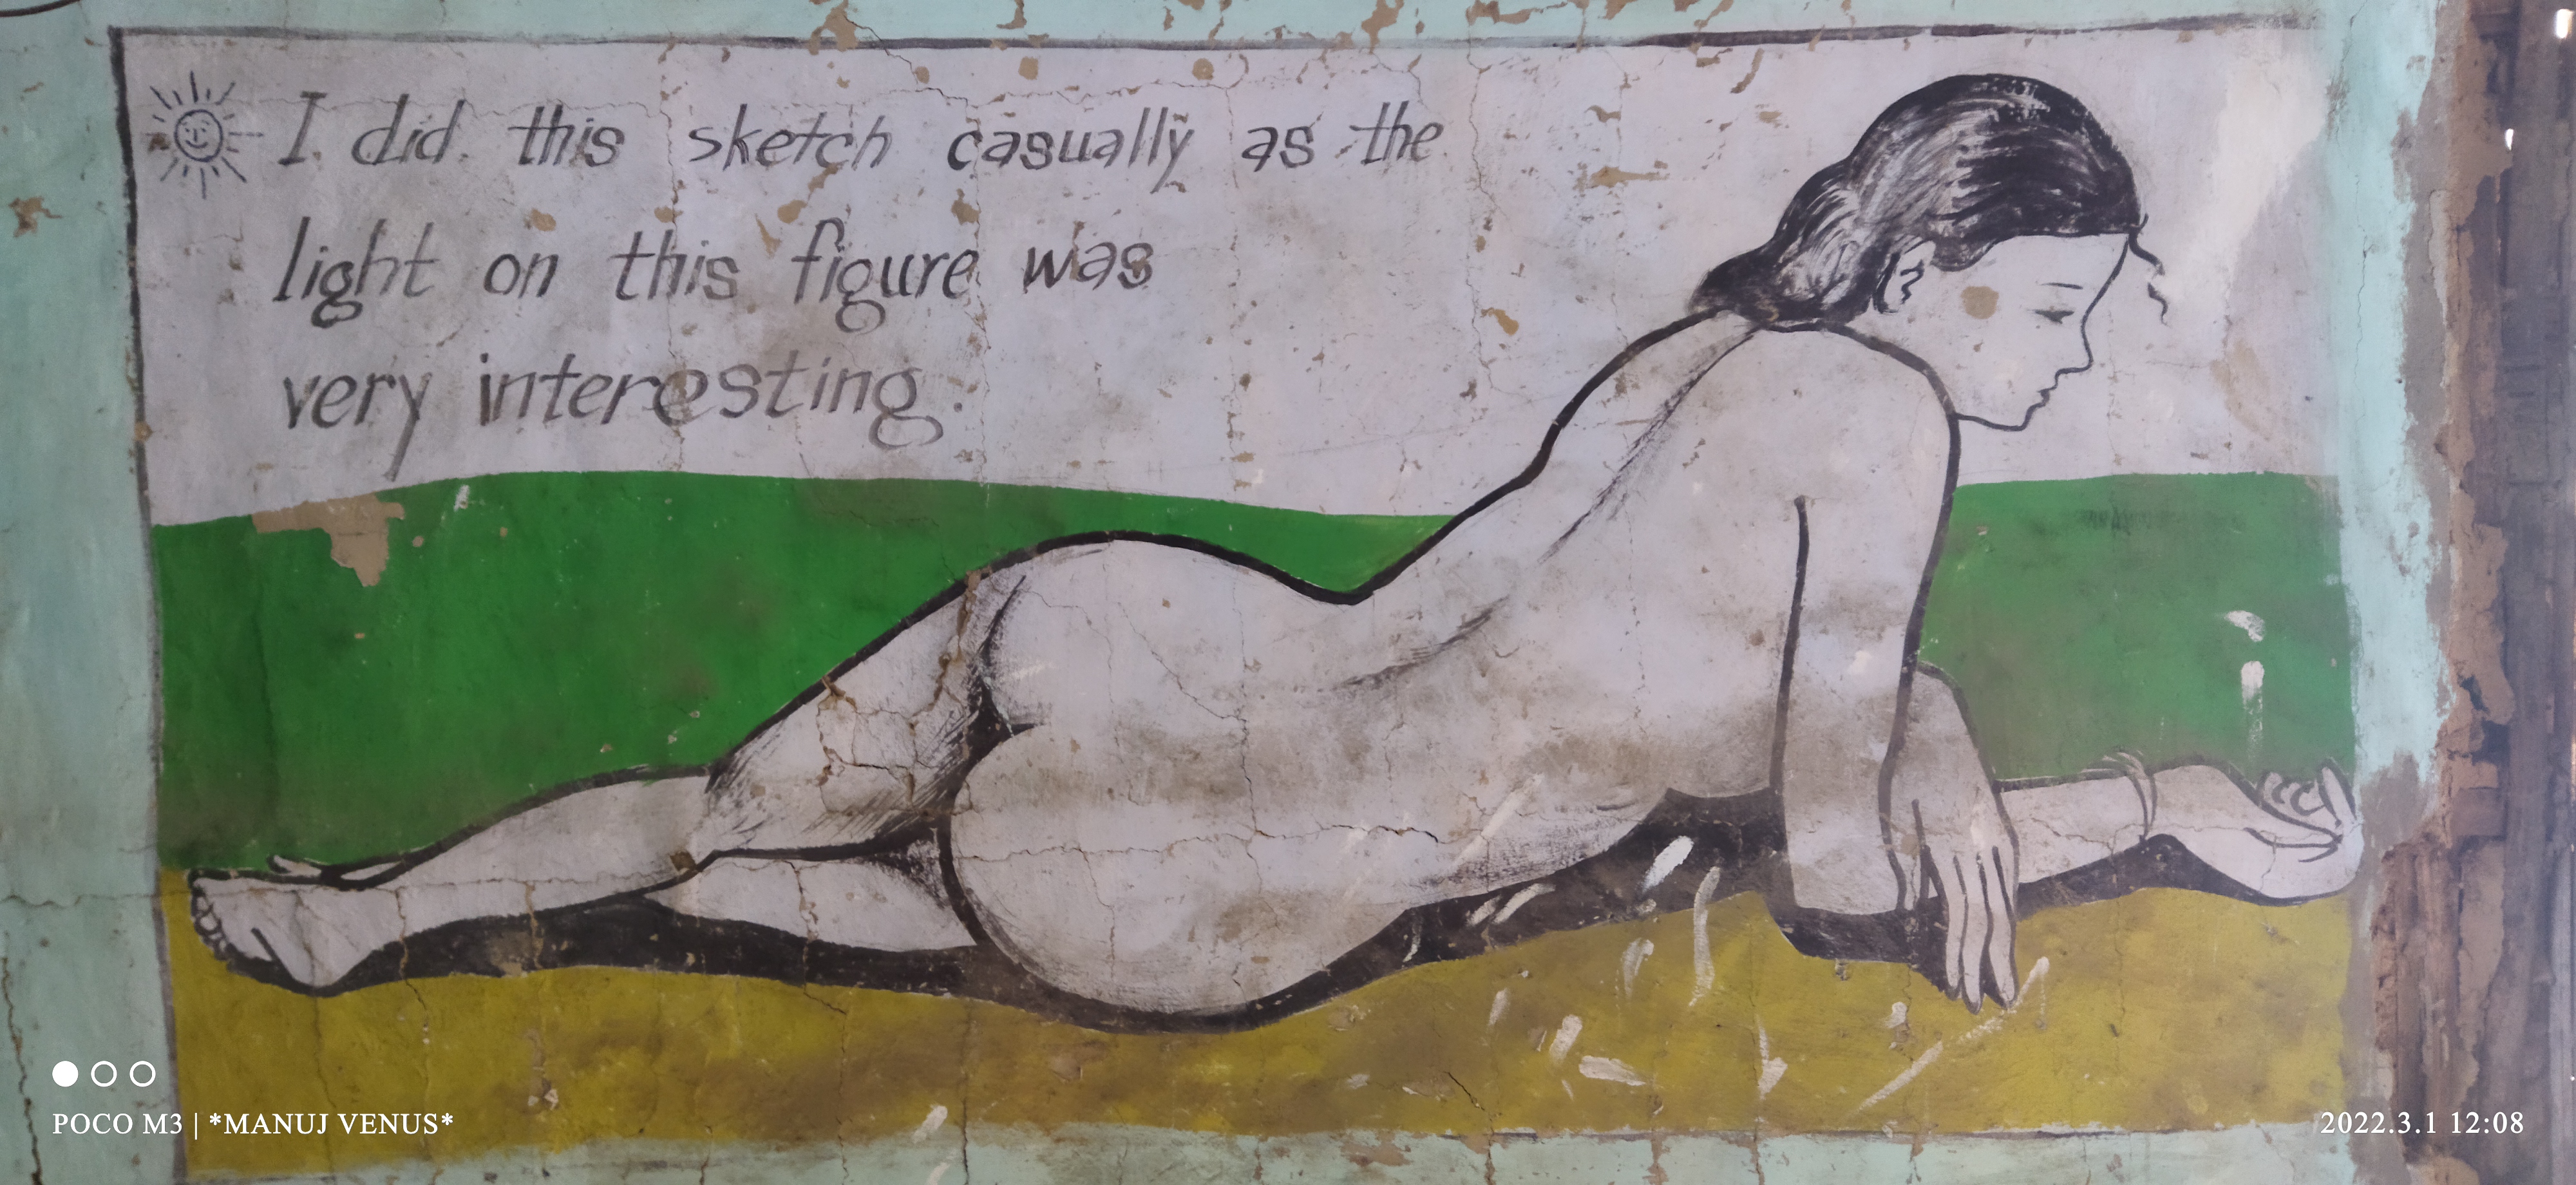 I did this sketch casually as the
light on this figure was
very interesting.
POCO M3 | *MANUJ VENUS*
2022.3.1 12:08